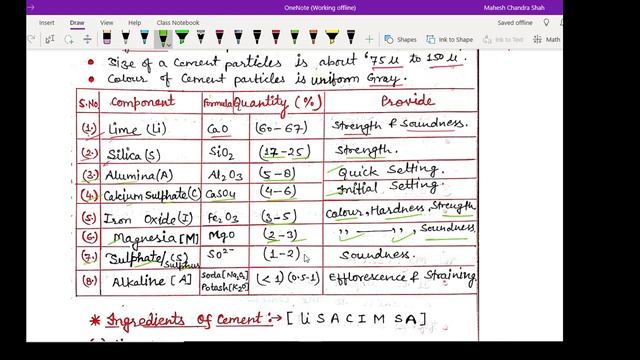 OneNote (Working offline)
Mahesh Chandra Shah
File Home Insert Draw View Help Class Notebook
Saved offline
Shapes Ink to Shape Ink to Text
• Size of a Cement particles is about 75 μ to 150 μ.
• Colour of Cement particles is uniform Gray.
S.No Component Formula Quantity (%) Provide
(1.) Lime (Li) CaO (60-67) Strength & Soundness.
(2.) Silica (S) SiO2 (17-25) Strength.
(3.) Alumina (A) Al2O3 (5-8) Quick Setting.
(4.) Calcium Sulphate (C) CaSO4 (4-6) Initial Setting.
(5.) Iron Oxide (I) Fe2O3 (3-5) Colour, Hardness, Strength
(6.) Magnesia [M] MgO (2-3) ,, ,, Soundness
(7.) Sulphate/ (S) SO2- (1-2) Soundness.
Sulphur
(8.) Alkaline [A] Soda [Na2O] (<1) (0.5-1) Efflorescence & Straining
Potash [K2O]
* Ingredients of Cement :→ [ Li S A C I M S A ]